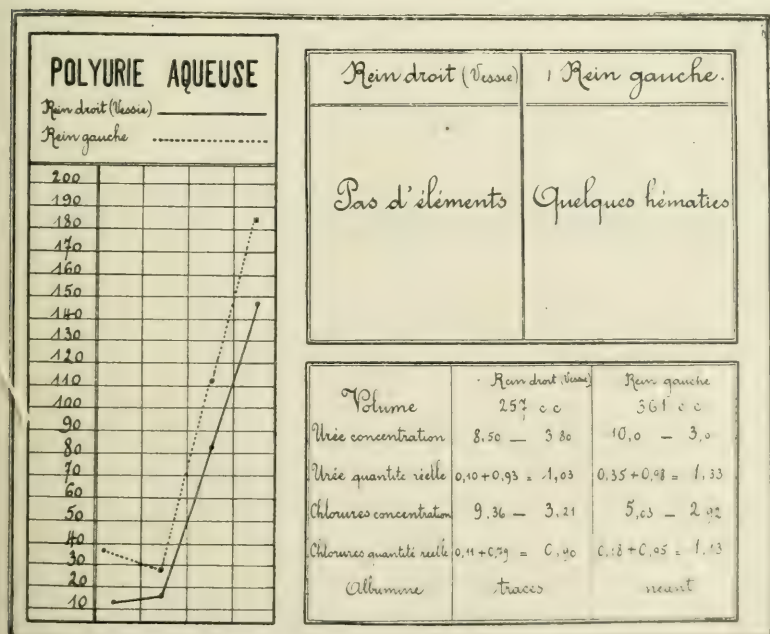 POLYURIE AQUEUSE
Rein droit (Vessie)
Rein gauche
200
190
180
170
160
150
140
130
120
110
100
90
80
70
60
50
40
30
20
10
Rein droit (Vessie) Rein gauche.
Pas d'éléments Quelques hématies
Rein droit (Vessie) Rein gauche
Volume 257 c c 361 c c
Urée concentration 8.50 — 3 80 10,0 — 3,0
Urée quantité réelle 0,10 + 0,93 = 1,03 0.35 + 0,98 = 1,33
Chlorures concentration 9.36 — 3.21 5,03 — 2 92
Chlorures quantité réelle 0,11 + 0,79 = 0,90 0,18 + 0,95 = 1.13
Albumine traces néant